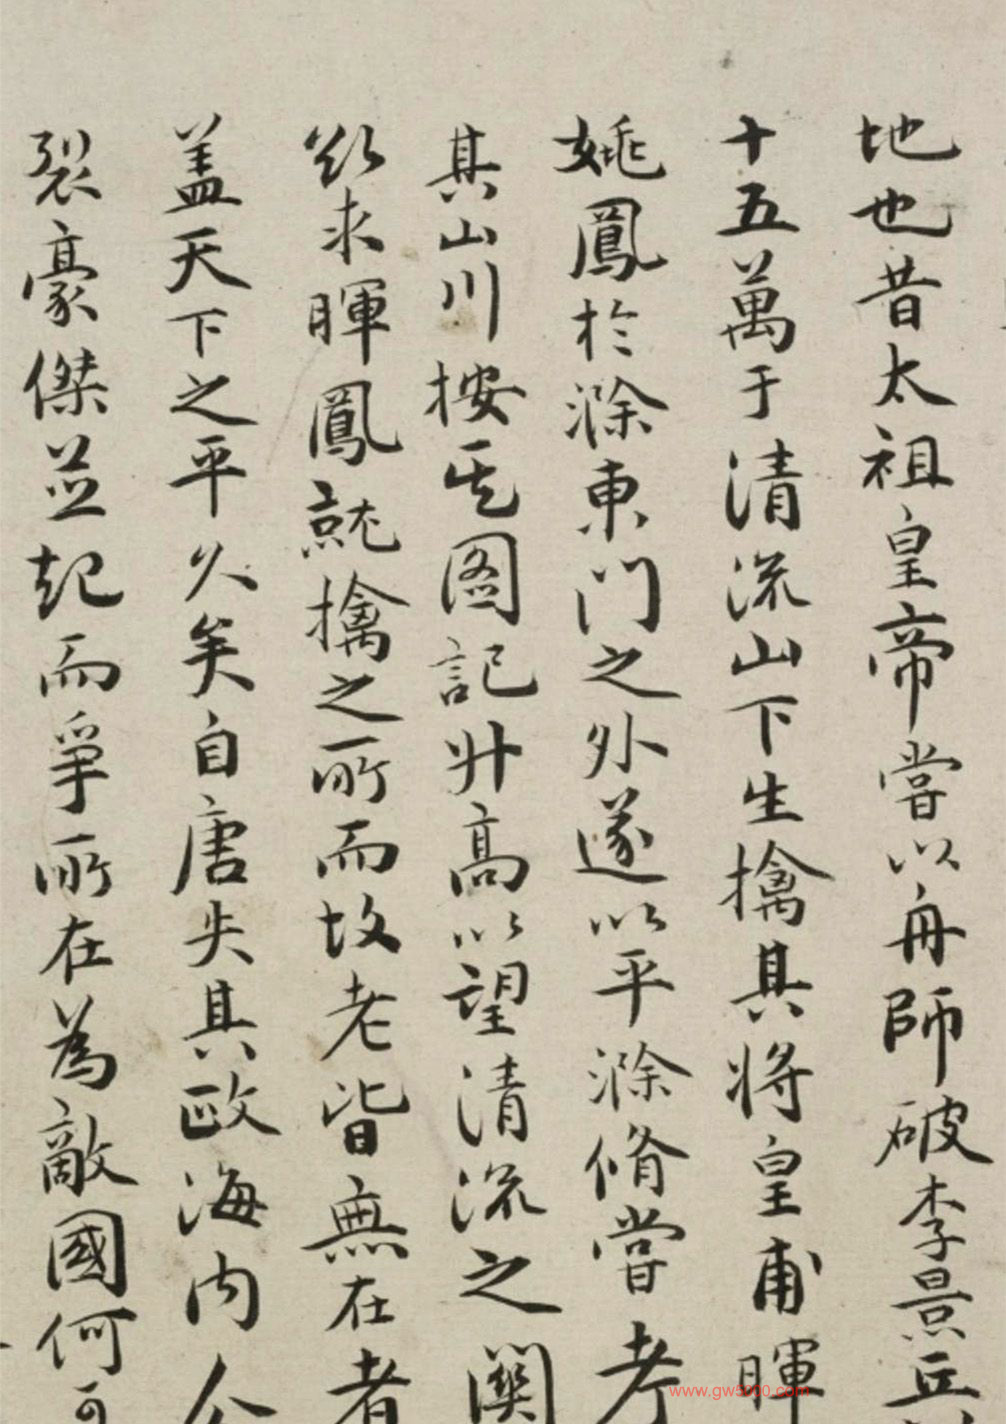 地也昔太祖皇帝嘗以舟師破李景兵
十五萬于清流山下生擒其將皇甫暉
姚鳳於滁東門之外遂以平滁脩嘗考
其山川按其图記升高以望清流之關
欲求暉鳳就擒之所而故老皆無在者
盖天下之平久矣自唐失其政海内分
裂豪傑並起而爭所在為敵國何可
www.gw5000.com